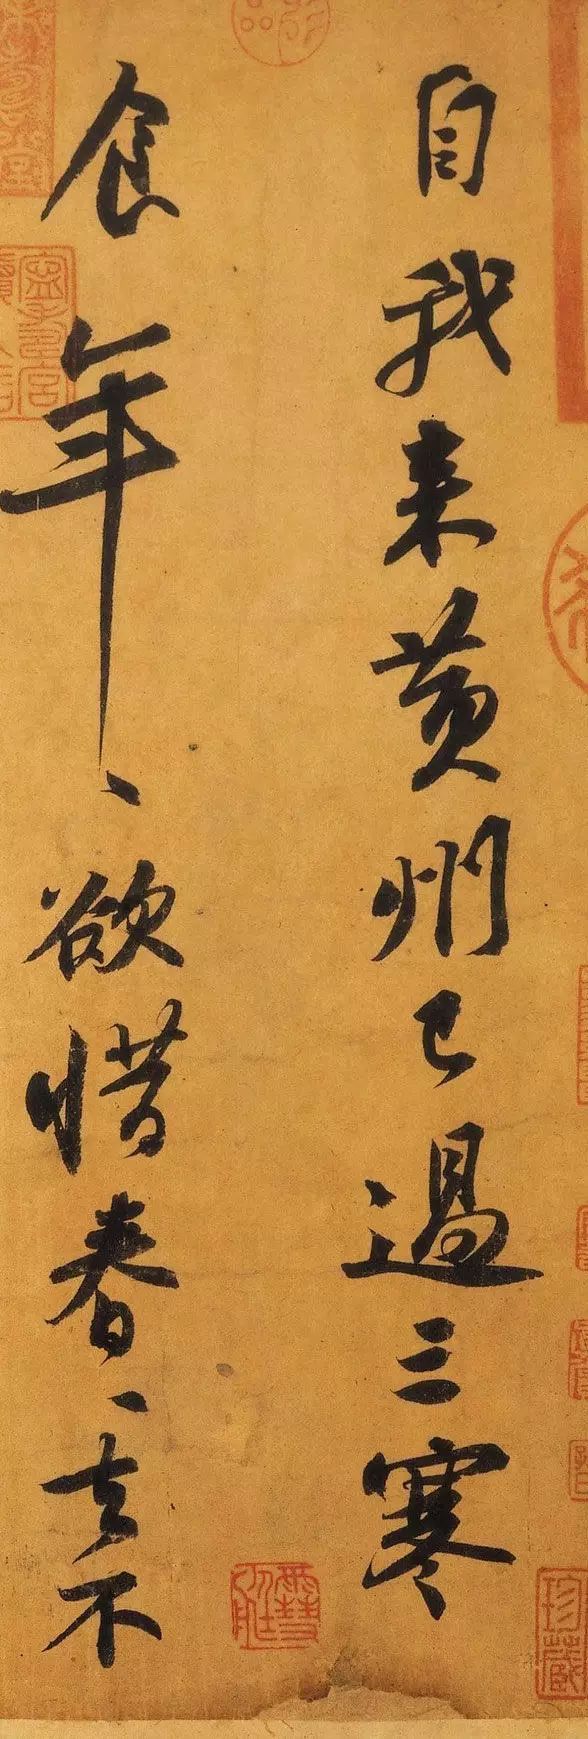 自我来黄州已過三寒
食年〻欲惜春〻去不
珍藏